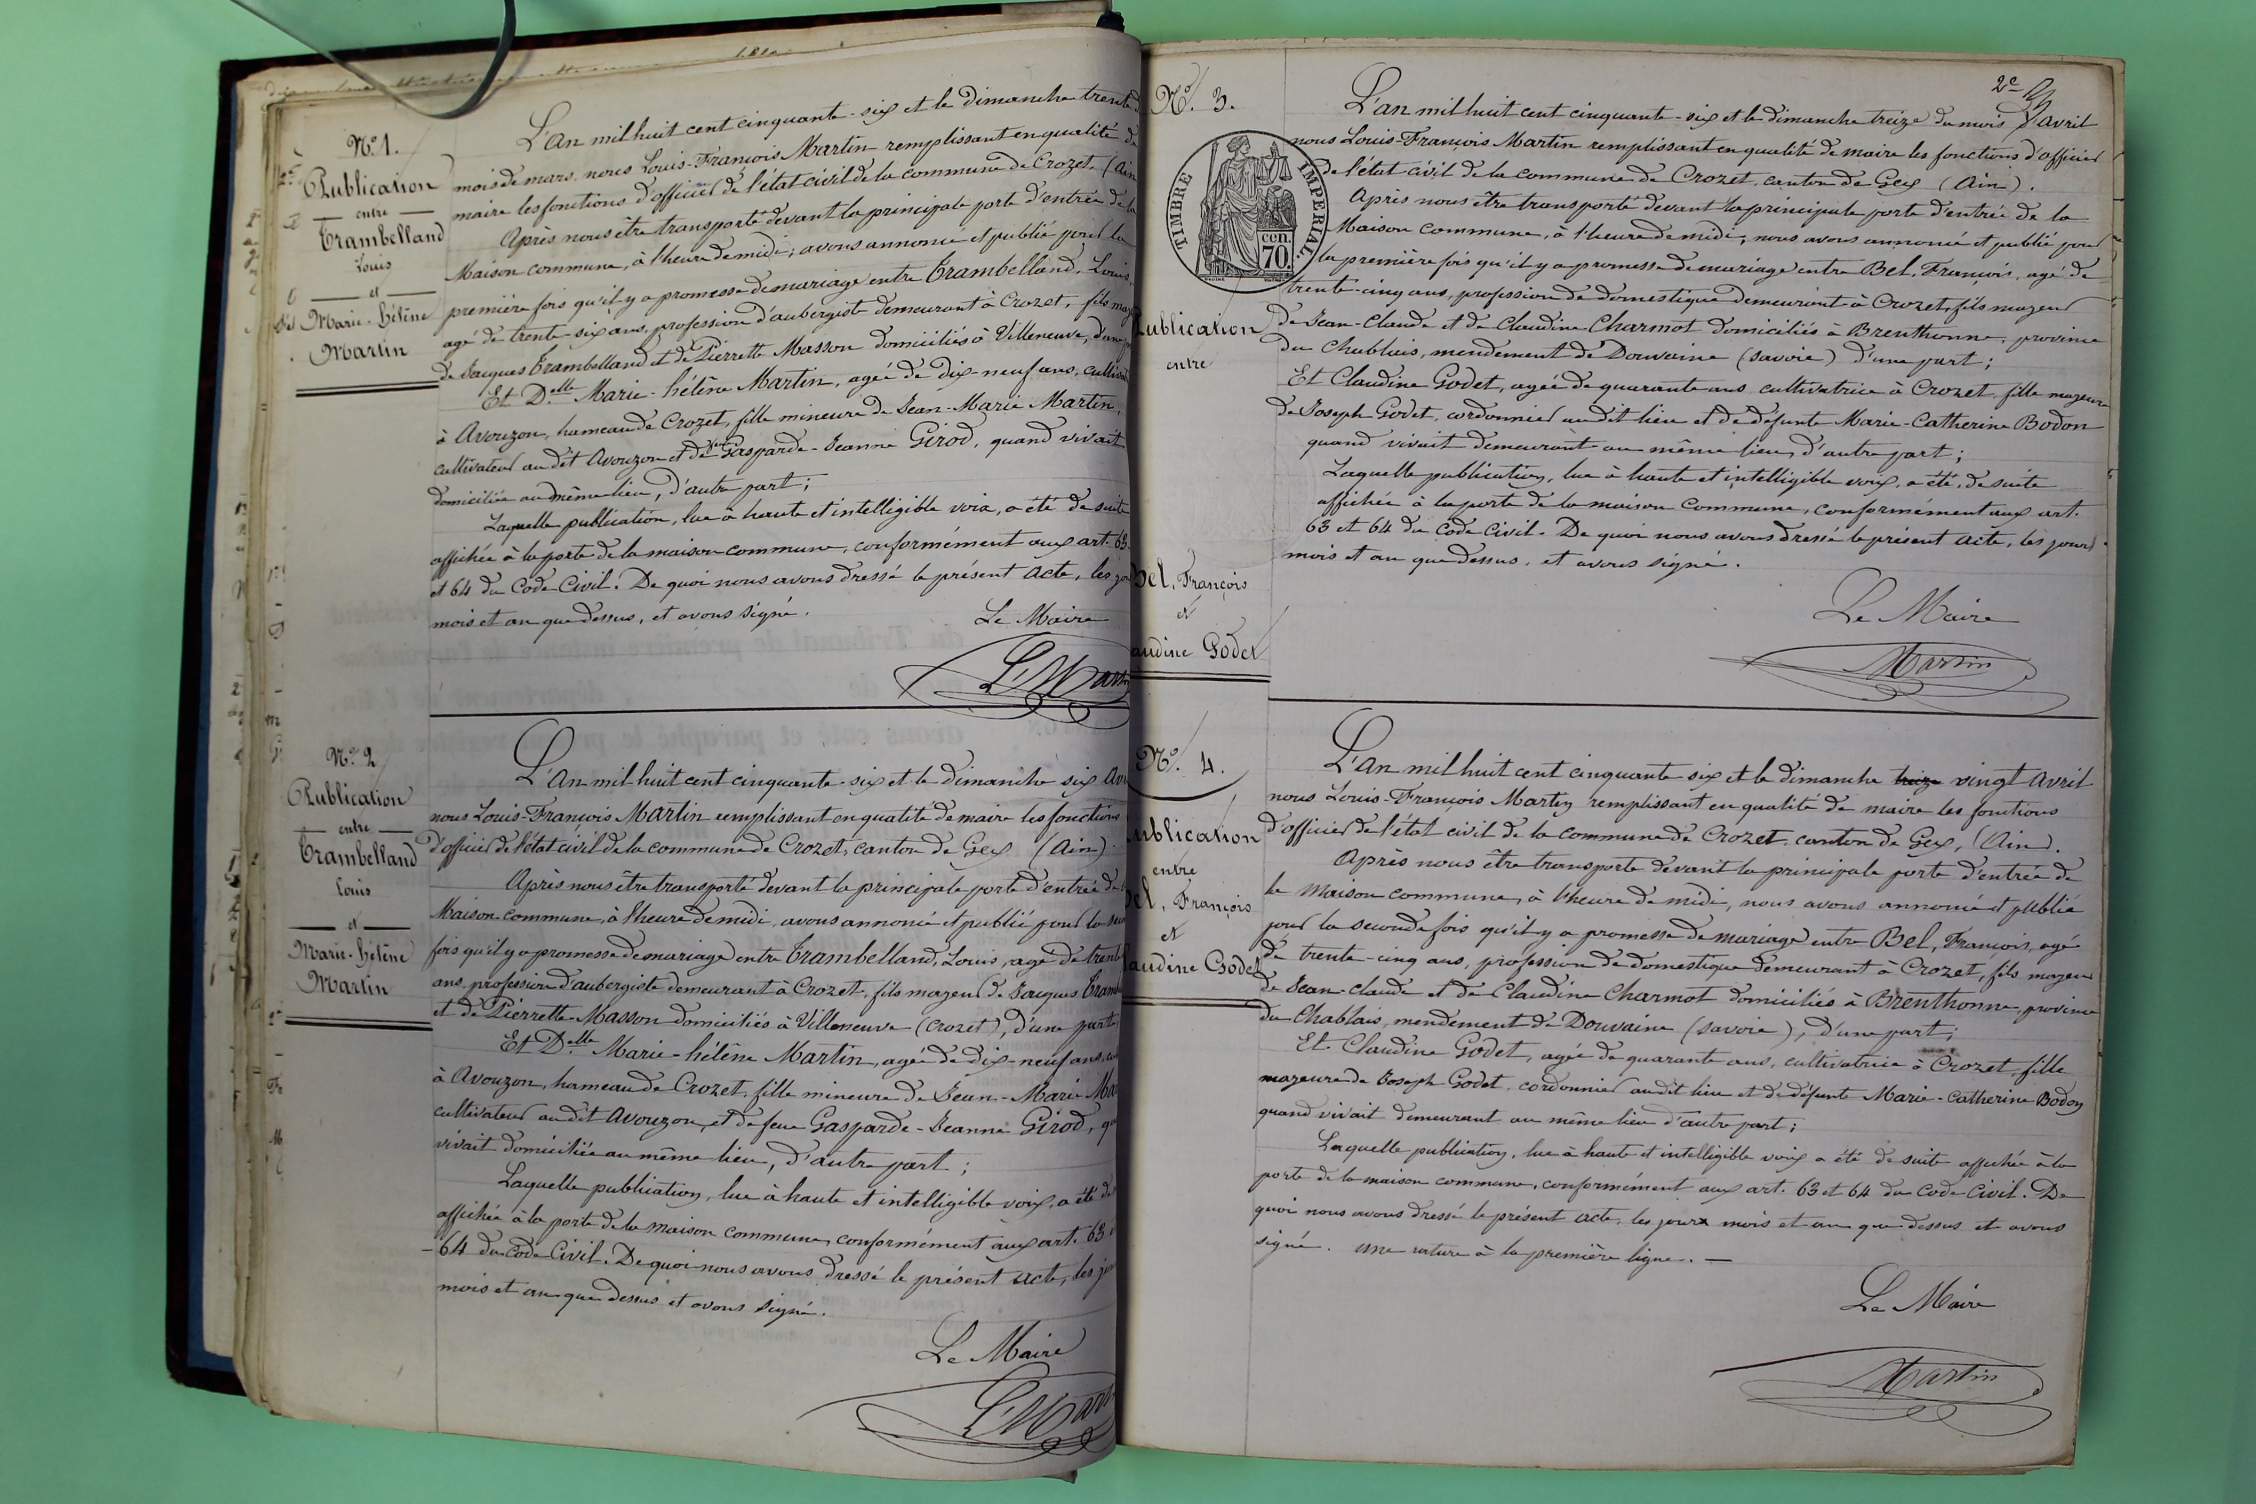 N° 1.
Publication
entre
Trambelland
Louis
et
Marie-hélène
Martin
L'An mil huit cent cinquante-six et le dimanche trente
mois de mars, nous Louis-François Martin remplissant en qualité de
maire les fonctions d'officier de l'état civil de la commune de Crozet, (Ain
Après nous être transporté devant la principale porte d'entrée de la
Maison commune, à l'heure de midi; avons annoncé et publié pour la
première fois qu'il y a promesse de mariage entre Trambelland, Louis,
agé de trente-six ans, profession d'aubergiste demeurant à Crozet, fils maj
de Jacques Trambelland et de Pierrette Masson domiciliés à Villeneuve, d'une
Et Delle Marie-hélène Martin, agée de dix-neuf ans, cultiva
à Avouzon, hameau de Crozet, fille mineure de Jean-Marie Martin,
cultivateur au dit Avouzon et de feue Gasparde-Jeanne Girod, quand vivait
domiciliée au même lieu, d'autre part;
Laquelle publication, lue à haute et intelligible voix, a été de suite
affichée à la porte de la maison commune, conformément aux art. 63
et 64 du Code Civil. De quoi nous avons dressé le présent acte, les jou
mois et an que dessus, et avons signé.
Le Maire
L Mart
N° 2
Publication
entre
Trambelland
Louis
et
Marie-hélène
Martin
L'An mil huit cent cinquante-six et le dimanche six Avr
nous Louis-François Martin remplissant en qualité de maire les fonctions
d'officier de l'état civil de la commune de Crozet, canton de Gex (Ain).
Après nous être transporté devant la principale porte d'entrée de
Maison commune, à l'heure de midi, avons annoncé et publié pour la
fois qu'il y a promesse de mariage entre Trambelland, Louis, agé de trente
ans, profession d'aubergiste demeurant à Crozet, fils majeur de Jacques Tram
et de Pierrette Masson domiciliés à Villeneuve (Crozet), d'une part
Et Delle Marie-hélène Martin, agée de dix-neuf ans,
à Avouzon, hameau de Crozet, fille mineure de Jean-Marie Ma
cultivateur au dit Avouzon, et de feue Gasparde-Jeanne Girod, qu
vivait domiciliée au même lieu, d'autre part;
Laquelle publication, lue à haute et intelligible voix, a été de
affichée à la porte de la maison commune, conformément aux art. 63
-64 du Code Civil. De quoi nous avons dressé le présent acte, les j
mois et an que dessus et avons signé.
Le Maire
L Mart
2e
N°. 3.
TIMBRE IMPERIAL
cen.
70.
Publication
entre
Bel, François
et
audine Godet
L'an mil huit cent cinquante-six et le dimanche treize du mois d'avril
nous Louis-François Martin remplissant en qualité de maire les fonctions d'officier
de l'état civil de la commune de Crozet, canton de Gex (Ain).
Après nous être transporté devant la principale porte d'entrée de la
Maison commune, à l'heure de midi, nous avons annoncé et publié pour
la première fois qu'il y a promesse de mariage entre Bel, François, agé de
trente-cinq ans, profession de domestique demeurant à Crozet, fils majeur
de Jean-Claude et de Claudine Charmot domiciliés à Brenthonne, province
du Chablais, mendement de Douvaine (Savoie) d'une part;
Et Claudine Godet, agée de quarante ans cultivatrice à Crozet, fille majeure
de Joseph Godet, cordonnier au dit lieu et de défunte Marie-Catherine Bodon
quand vivait demeurant au même lieu, d'autre part;
Laquelle publication, lue à haute et intelligible voix, a été, de suite
affichée à la porte de la maison commune, conformément aux art.
63 et 64 du Code Civil. De quoi nous avons dressé le présent acte, les jour
mois et an que dessus, et avons signé.
Le Maire
Martin
N°. 4.
ublication
entre
el, François
et
audine Godet
L'an mil huit cent cinquante six et le dimanche treize vingt avril
nous Louis-François Martin remplissant en qualité de maire les fonctions
d'officier de l'état civil de la commune de Crozet, canton de Gex, (Ain).
Après nous être transporté devant la principale porte d'entrée de
la maison commune, à l'heure de midi, nous avons annoncé et publié
pour la seconde fois qu'il y a promesse de mariage entre Bel, François, agé
de trente-cinq ans, profession de domestique demeurant à Crozet, fils majeur
de Jean-claude et de Claudine Charmot domiciliés à Brenthonne, province
du Chablais, mendement de Douvaine (Savoie), d'une part;
Et Claudine Godet, agée de quarante ans, cultivatrice à Crozet, fille
majeure de Joseph Godet, cordonnier au dit lieu et de défunte Marie-Catherine Bodon
quand vivait demeurant au même lieu d'autre part;
Laquelle publication, lue à haute et intelligible voix a été de suite affichée à la
porte de la maison commune, conformément aux art. 63 et 64 du Code Civil. De
quoi nous avons dressé le présent acte, les jour mois et an que dessus et avons
signé. une rature à la première ligne. —
Le Maire
Martin